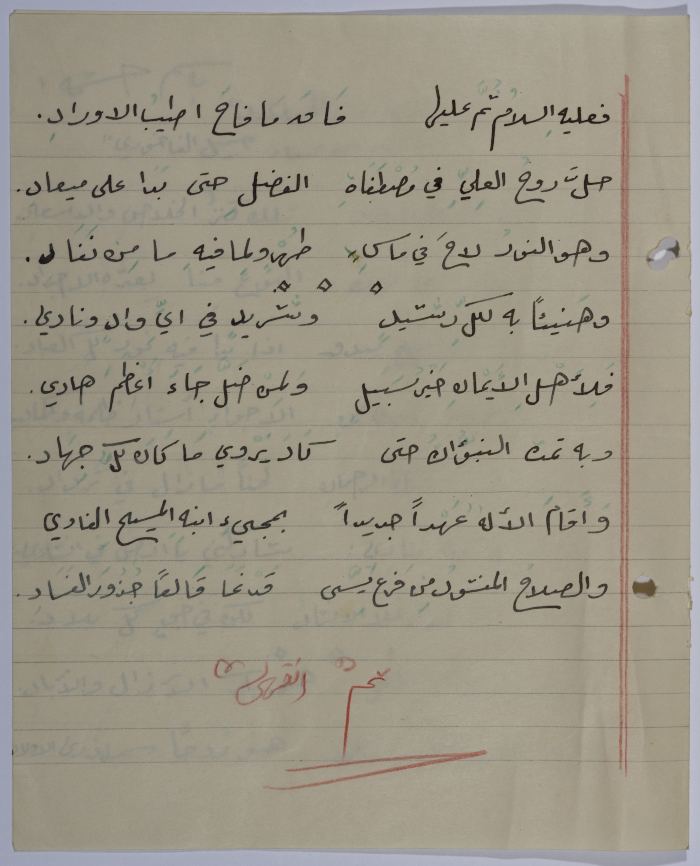 فعليه السلام ثم عليها فاقد ما فاح اطيب الاوراد.
حلّت روح العليّ في مصطفاة الفضل حتى بدا على ميعاد.
وهو النور لاح في ماس طهر ولما فيه ما من نفاد.
وهنيئاً به لكل ونشريد في ايّ واد ونادي.
فلأهل الأيمان خير سبيل ولمن ضل جاء اعظم هادي.
وبه تمت النبؤات حتى كاد يروي ما كان كل جهاد.
وأقام الأله عهداً جديداً بمجيء ابنه المسيح الفادي
والصلاح المنشود من فرع يسّى قد نما قالعًا جذور الفساد.
تم